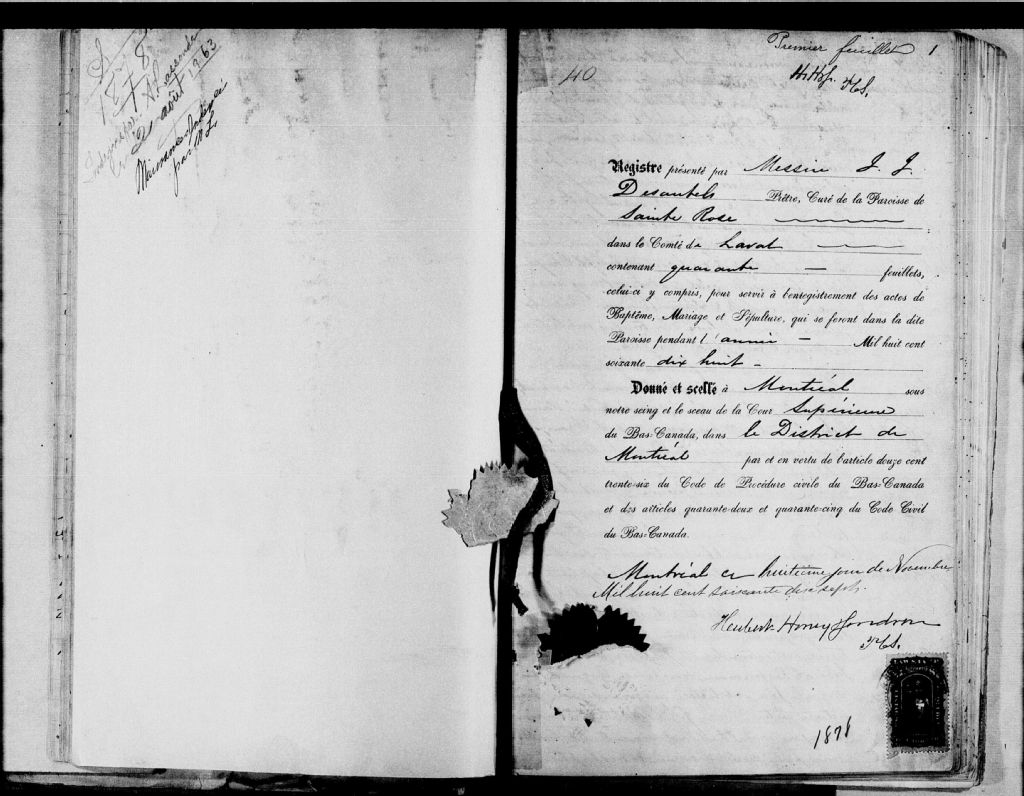 S
1878
Indexé par A. Lacasse
le 2 août 1963
par
40
Premier feuillet 1
H.H.G.
P.C.S.
Registre présenté par Messire J. J.
Desautels Prêtre, Curé de la Paroisse de
Sainte Rose
dans le Comté de Laval
contenant quarante — feuillets,
celui-ci y compris, pour servir à l'enregistrement des actes de
Baptême, Mariage et Sépulture, qui se feront dans la dite
Paroisse pendant l'année — Mil huit cent
soixante dix huit -
Donné et scellé à Montréal sous
notre seing et le sceau de la Cour Supérieure
du Bas-Canada, dans le District de
Montréal par et en vertu de l'article douze cent
trente-six du Code de Procédure civile du Bas-Canada
et des articles quarante-deux et quarante-cinq du Code Civil
du Bas-Canada.
Montréal ce huitième jour de Novembre
Mil huit cent soixante dix sept.
Hubert Honey Gendron
P.C.S.
1878